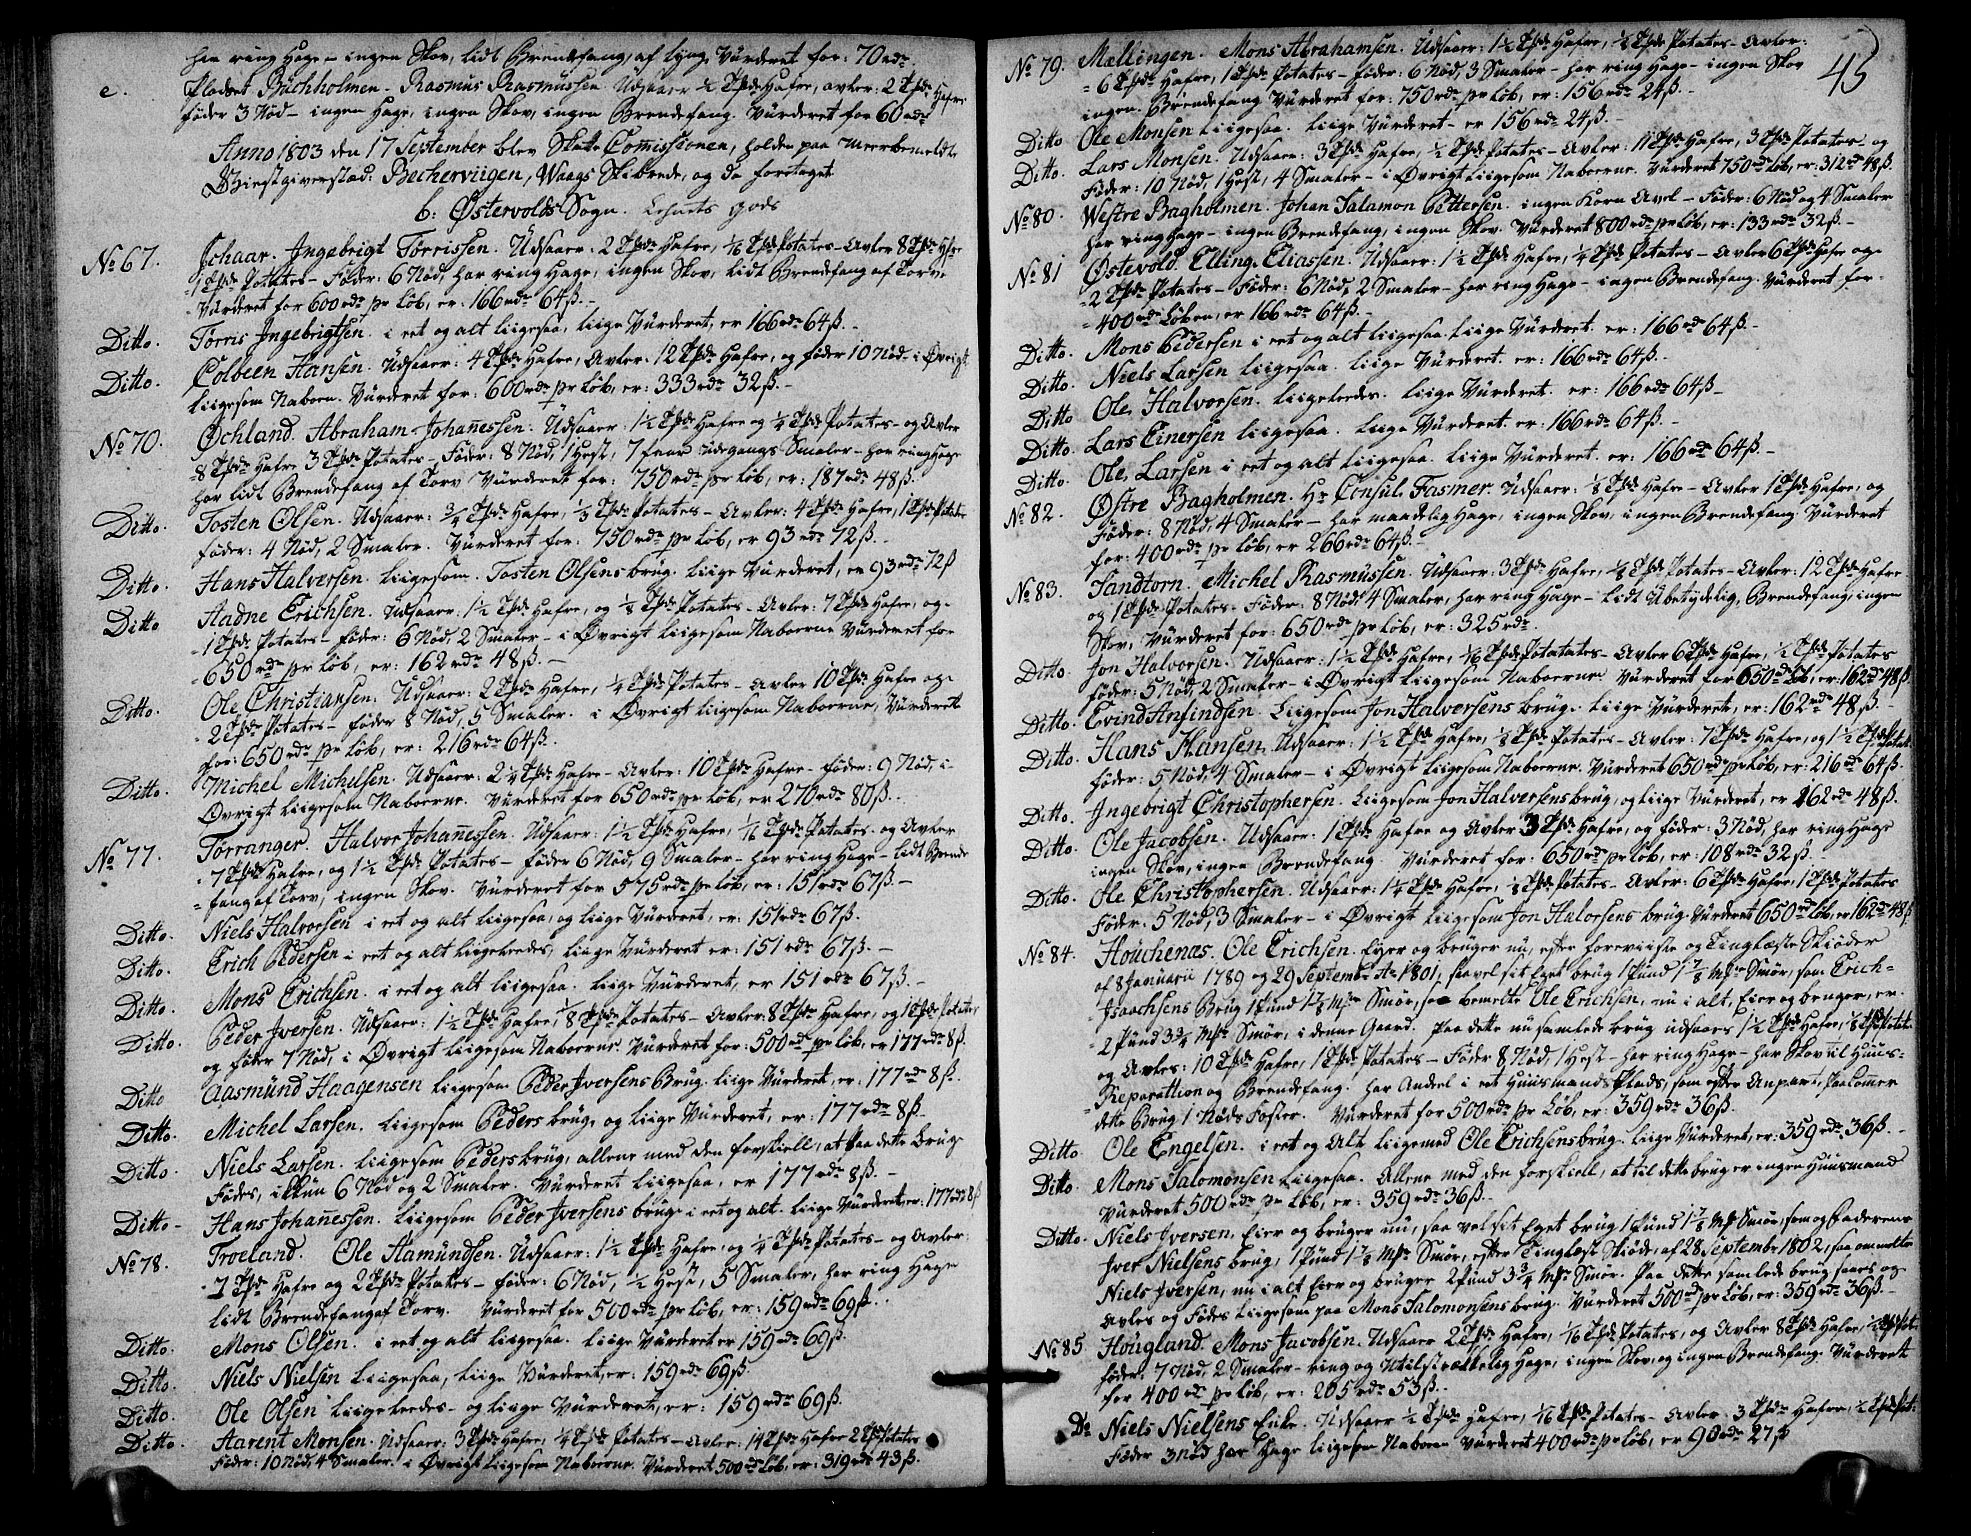 har ring Hage – ingen Skov, lidt Brendefang af lyng. Vürderet for: 70 rdr
e. Pladset Buchholmen – Rasmus Rasmüssen. Udsaaer ½ Tønde Hafre, avler: 2 Tdr Hafre
føder 3 Nød – ingen Hage, ingen Skov, ingen Brendefang. Vürderet for 60 rdr
Anno 1803 den 17 September blev Skatte Comissionen, holden paa Meerbemeldte
Giestgiverstæd: Becherviigen, Waags Skibrede, og da foretaget
b: Østervolds Sogn. Lehnets gods
No 67. Schaar. Ingebrigt Torrissen. Udsaaer: 2 Tdr Hafre, 1/16 Tdr Potates – Avler 8 Tdr Hafre
1 Tdr Potates – Føder: 6 Nød, har ring Hage, ingen Skov, lidt Brendefang af Torv,
Vürderet for 600 rdr pr Løb, er: 166 rdr 64 ß. –
Ditto. Torris Ingebrigtsen. i eet og alt liigesaa, liige Vürderet, er 166 rdr 64 ß. –
Ditto. Colbeen Hansen. Udsaaer: 4 Tdr Hafre, Avler: 12 Tdr Hafre, og føder 10 Nød. i Øvrigt
liigesom Naboen. Vürderet for: 600 rdr pr Løb, er: 333 rdr 32 ß. –
No 70. Øchland. Abraham Johannessen. Udsaaer: 1½ Tdr Hafre og ¼ Tdr Potates – og Avler
8 Tdr Hafre 3 Tdr Potates – Føder: 8 Nød, 1 Hest, 7 faar udegangs Smaler – har ring Hage
har lidt Brendefang af Torv Vürderet for: 750 rdr pr Løb, er: 187 rdr 48 ß.
Ditto. Tosten Olsen. Udsaaer: ¾ Tdr Hafre, ⅛ Tdr Potates – Avler: 4 Tdr Hafre, 1 Tdr Potates
føder: 4 Nød, 2 Smaler. Vürderet for: 750 rdr pr Løb, er 93 rdr 72 ß. –
Ditto. Hans Halversen. liigesom Tosten Olsens brüg. liige Vürderet, er 93 rdr 72 ß
Ditto Aadne Erichsen. Udsaaer: 1½ Tdr Hafre, og ⅛ Tdr Potates – Avler: 7 Tdr Hafre, og
1 Tdr Potates føder: 6 Nød, 2 Smaler – i Øvrigt liigesom Naboerne Vürderet for
650 rdr pr Løb, er: 162 rdr 48 ß. –
Ditto. Ole Christiansen. Udsaaer: 2 Tdr Hafre, ¼ Tdr Potates – Avler 10 Tdr Hafre og
2 Tdr Potates – føder 8 Nød, 5 Smaler. i Øvrigt liigesom Naboerne, Vürderet
for: 650 rdr pr Løb, er: 216 rdr 64 ß. –
Ditto. Michel Michelsen. Udsaaer: 2¼ Tdr Hafre – Avler: 10 Tdr Hafre – føder: 9 Nød, i
Øvrigt liigesom Naboerne. Vürderet for 650 rdr pr Løb, er 270 rdr 80 ß.
No 77. Torranger. Halvor Johannessen. Udsaaer: 1½ Tdr Hafre, 1/16 Tdr Potates og Avler
7 Tdr Hafre, og 1½ Tdr Potates – føder 6 Nød, 9 Smaler – har ring Hage – lidt Brende
fang af Torv, ingen Skov. Vürderet for 575 rdr pr Løb, er: 151 rdr 67 ß. –
Ditto. Niels Halvorsen i eet og alt liigesaa, og liige Vürderet, er: 151 rdr 67 ß.
Ditto. Erich Pedersen i eet og alt liigeleedes, liige Vürderet er: 151 rdr 67 ß. –
Ditto. Mons Erichsen. i eet og alt liigesaa. liige Vürderet, er 151 rdr 67 ß. –
Ditto. Peder Iversen. Udsaaer: 1½ Tdr Hafre, ⅛ Tdr Potates – Avler: 8 Tdr Hafre, og 1 Tdr Potates
og føder 7 Nød, i Øvrigt liigesom Naboerne. Vürderet for: 500 rdr pr Løb, er 177 rdr 8 ß.
Ditto Aasmünd Haagensen liigesom Peder Iversens Brüg. liige Vürderet, er: 177 rdr 8 ß.
Ditto. Michel Larsen. liigesom Peders brüg, og liige Vürderet, er: 177 rdr 8 ß.
Ditto. Niels Larsen. liigesom Peders brüg, allene med den forskiell, at paa dette brüg
Fødes, ikkun 6 Nød og 2 Smaler. Vürderet liigesaa, er 177 rdr 8 ß. –
Ditto – Hans Johannessen. liigesom Peder Iversens brüg i eet og alt. liige Vürderet, er: 177 rdr 8 ß
No 78. Troeland. Ole Aamündsen. Udsaaer: 1½ Tdr Hafre, og ¼ Tdr Potates – og Avler:
7 Tdr Hafre og 2 Tdr Potates – føder: 6 Nød, ½ Hest, 5 Smaler, har ring Hage
lidt Brendefang af Torv. Vürderet for 500 rdr pr Løb, er: 159 rdr 69 ß.
Ditto. Mons Olsen. i eet og alt liigesaa. liige Vürderet er 159 rdr 69 ß.
Ditto. Niels Nielsen liigesaa, liige Vürderet, er: 159 rdr 69 ß.
Ditto. Ole Olsen liigeleedes – og liige Vürderet, er: 159 rdr 69 ß.
Ditto. Aarent Monsen. Udsaaer: 3 Tdr Hafre, ¼ Tdr Potates – Avler: 14 Tdr Hafre 2 Tdr Potates
Føder: 10 Nød, 4 Smaler. i Øvrigt liigesom Naboerne. Vürderet 500 rdr Løb, er: 319 rdr 43 ß.
45
No 79. Mællingen. Mons Abrahamsen. Udsaaer: 1½ Tdr Hafre, ¼ Tdr Potates – Avler:
6 Tdr Hafre, 1 Tdr Potates – føder: 6 Nød, 3 Smaler – har ring Hage – ingen Skov
ingen Brendefang Vürderet for: 750 rdr pr Løb, er: 156 rdr 24 ß. –
Ditto Ole Monsen liigesaa. liige Vürderet – er 156 rdr 24 ß. –
Ditto. Lars Monsen. Udsaaer: 3 Tdr Hafre, ½ Tdr Potates – Avler: 11 Tdr Hafre, 3 Tdr Potates, og
Føder: 10 Nød, 1 Hest, 4 Smaler – i Øvrigt liigesom Naboerne. Vürderet 750 rdr Løb, er: 312 rdr 48 ß.
No 80. Westre Bagholmen. Johan Salamon Pettersen. ingen Korn Avel – Føder: 6 Nød og 4 Smaler
har ring Hage – ingen Brendefang, ingen Skov. Vürderet 800 rdr pr Løb, er: 133 rdr 32 ß. –
No 81 Østevold. Elling Eliassen. Udsaaer: 1½ Tdr Hafre, ¼ Tdr Potates – Avler 6 Tdr Hafre og
2 Tdr Potates – Føder: 6 Nød, 2 Smaler – har ring Hage – ingen Brendefang. Vürderet for
400 rdr Løben, er 166 rdr 64 ß. –
Ditto. Mons Pedersen i eet og alt liigesaa. liige Vürderet. er: 166 rdr 64 ß. –
Ditto. Niels Larsen liigesaa. liige Vürderet. er: 166 rdr 64 ß. –
Ditto Ole Halvorsen. liigeleedes. liige Vürderet. er: 166 rdr 64 ß. –
Ditto. Lars Einersen liigesaa. liige Vürderet. er: 166 rdr 64 ß. –
Ditto. Ole Larsen i eet og alt liigesaa. liige Vürderet. er: 166 rdr 64 ß. –
No 82. Østre Bagholmen. Hr Consul Fasmer. Udsaaer: ⅛ Tdr Hafre – Avler 1 Tdr Hafre, og
Føder: 8 Nød, 4 Smaler – har maadelig Hage, ingen Skov, ingen Brendefang. Vürderet
for: 400 rdr pr Løb, er 266 rdr 64 ß. –
No 83. Sandtorn. Michel Rasmüssen. Udsaaer: 3 Tdr Hafre, ⅛ Tdr Potates – Avler: 12 Tdr Hafre
og 1 Tdr Potates – Føder: 8 Nød, 4 Smaler, har ring Hage – lidt Ubetydelig, Brendefang, ingen
Skov, Vürderet for: 650 rdr pr Løb, er: 325 rdr
Ditto. Jon Halvorsen. Udsaaer: 1½ Tdr Hafre, 1/16 Tdr Potatates – Avler 6 Tdr Hafre, ½ Tdr Potates
føder: 5 Nød, 2 Smaler – i Øvrigt liigesom Naboerne Vürderet for 650 rdr Løb, er: 162 rdr 48 ß.
Ditto. Evind Ansindsen. Liigesom Jon Halversens brüg. liige Vürderet, er: 162 rdr 48 ß. –
Ditto. Hans Hansen. Udsaaer: 1½ Tdr Hafre, ⅛ Tdr Potates – Avler: 7 Tdr Hafre, og 1½ Tdr Potat.
føder: 5 Nød, 4 Smaler – i Øvrigt liigesom Naboerne. Vürderet 650 rdr pr Løb, er: 216 rdr 64 ß.
Ditto. Ingebrigt Christophersen. liigesom Jon Halversens brüg, og liige Vürderet, er 162 rdr 48 ß.
Ditto. Ole Jacobsen. Udsaaer: 1 Tdr Hafre og Avler 3 Tdr Hafre, og føder: 3 Nød, har ring Hage
ingen Skov, ingen Brendefang Vürderet for: 650 rdr pr Løb, er: 108 rdr 32 ß.
Ditto. Ole Christophersen. Udsaaer: 1½ Tdr Hafre, ⅛ Tdr Potates – Avler: 6 Tdr Hafre, 1 Tdr Potates
Føder: 5 Nød, 3 Smaler – i Øvrigt liigesom Jon Halvorsens brüg. Vürderet 650 rdr Løb, er 162 rdr 48 ß
No 84. Houchenæs. Ole Erichsen. Eyer og brüger nu, efter foreviiste og Tinglæste Skiøder
af 8 Januarii 1789 og 29 September Ao 1801, saavel sit Eget brüg 1 Pünd 1⅞ Mkr Smør, som Erich
Isaachsens Brüg 1 Pünd 1⅞ Mkr Smør, saa bemelte Ole Erichsen, nu i alt, Eier og bruger, er
2 Pünd 3¾ Mkr Smør, i denne Gaard. Paa dette nu samlede brüg udsaaes 1½ Tdr Hafre, ⅛ Tdr Potat.
og Avles: 10 Tdr Hafre, 1 Tdr Potates – Føder 8 Nød, 1 Hest – har ring Hage – har Skov til Huus
Reparattion og Brendefang. har Andeel i eet Huusmands Plads, som efter Anpart, paa
dette Brüg 1 Nøds Foster. Vürderet for 500 rdr pr Løb, er: 359 rdr 36 ß.
Ditto Ole Engelsen. i eet og Alt liigemed Ole Erichsens brüg. liige Vürderet, er: 359 rdr 36 ß. –
Ditto. Mons Salomonsen liigesaa. Allene med den forskiell, at til dette brüg er ingen Huusmand
Vürderet 500 rdr pr Løb, er: 359 rdr 36 ß. –
Ditto. Niels Iversen, Eier og brüger nu, saavel sit Eget brüg 1 Pünd 1⅞ Mkr Smør, som og Faderens
Iver Nielsens brüg, 1 Pünd 1⅞ Mkr Smør, efter Tinglæst Skiøde, af 28 September 1802, saa ommelte
Niels Iversen, nu i alt Eier og brüger 2 Pünd 3¾ Mkr Smør. Paa dette samlede brüg saaes og
Avles og Fødes liigesom paa Mons Salomonsens brüg. Vürderet 500 rdr pr Løb, er: 359 rdr 36 ß. –
No 85 Hougland. Mons Jacobsen. Udsaaer 2 Tdr Hafre, 1/16 Tdr Potates, og Avler 8 Tdr Hafre, ½ Tdr Pot.
føder: 7 Nød, 2 Smaler – ring og Utilstrækkelig Hage, ingen Skov, og ingen Brendefang. Vürderet
for 400 rdr pr Løb, er: 205 rdr 53 ß. –
Do Niels Nielsens Enke. Udsaaer ½ Tdr Hafre, 1/16 Tdr Potates – Avler: 3 Tdr Hafre, ½ Tdr Pot.
Føder 3 Nød har Hage liigesom Naboen Vürderet 400 rdr pr Løb, er 90 rdr 27 ß